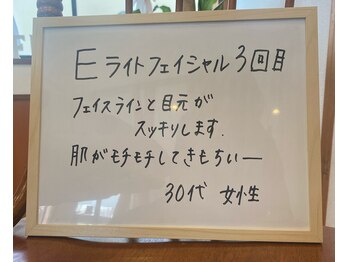 Eライトフェイシャル3回目
フェイスラインと目元が
スッキリします.
肌がモチモチしてきもちぃー
30代 女性